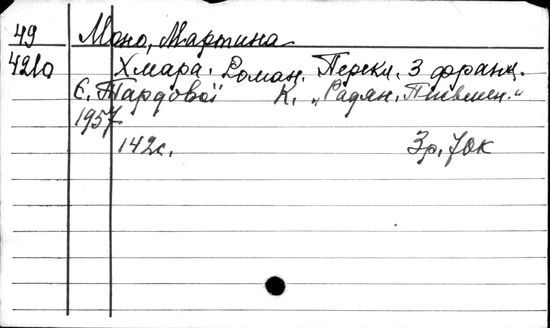 49 Моно, Мартина
421о Хмара. Роман. Перекл. з франц.
Є. Тардової К. „Радян. Письмен.“
1957
142с. 3р. 70к